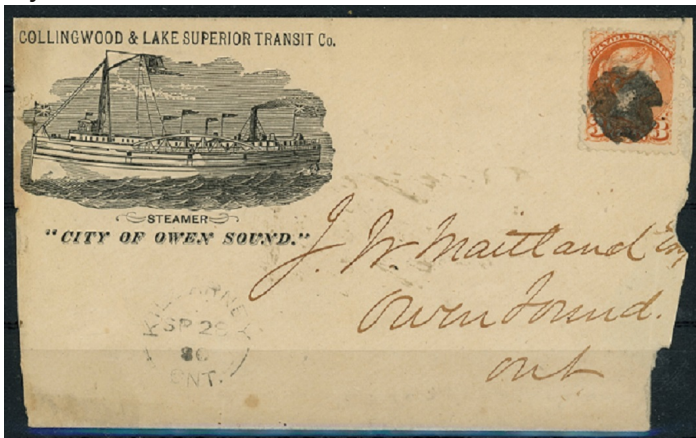 COLLINGWOOD & LAKE SUPERIOR TRANSIT Co.
CANADA POSTAGE
STEAMER
"CITY OF OWEN SOUND."
J. W. Maitland Esq
Owen Sound.
Ont
KILLARNEY
SP 28
80
ONT.